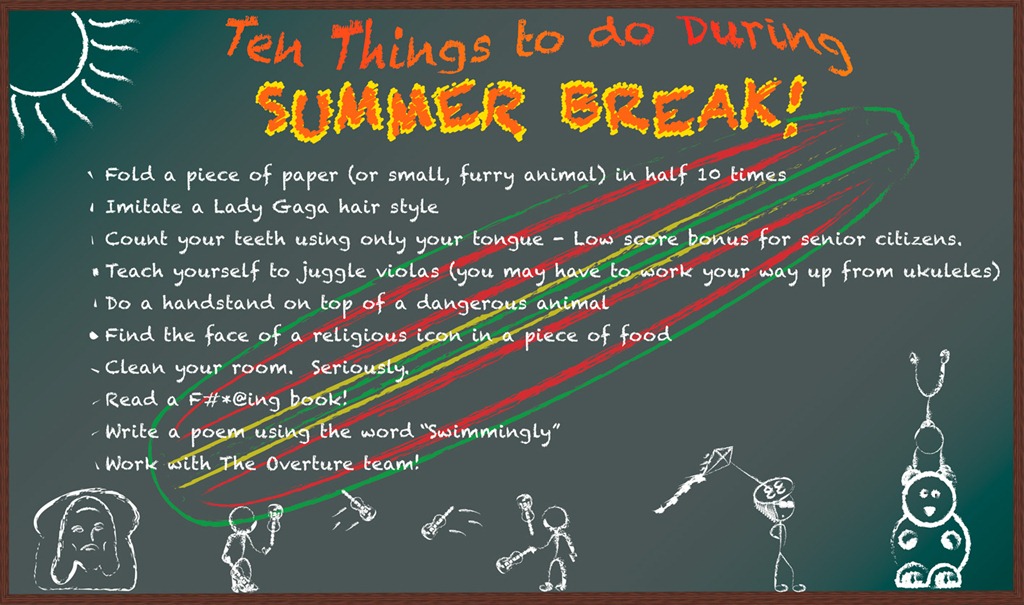 Ten Things to do During
SUMMER BREAK!
Fold a piece of paper (or small, furry animal) in half 10 times
Imitate a Lady Gaga hair style
Count your teeth using only your tongue - Low score bonus for senior citizens.
Teach yourself to juggle violas (you may have to work your way up from ukuleles)
Do a handstand on top of a dangerous animal
Find the face of a religious icon in a piece of food
Clean your room. Seriously.
Read a F#*@ing book!
Write a poem using the word "Swimmingly"
Work with The Overture team!